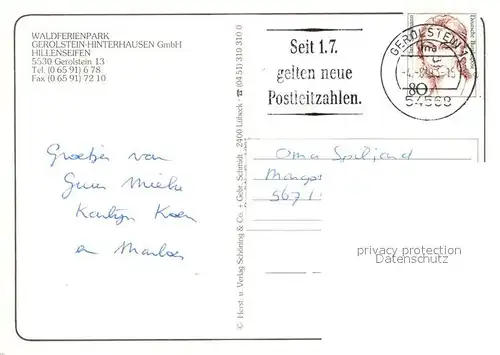 WALDFERIENPARK
GEROLSTEIN-HINTERHAUSEN GmbH
HILLENSEIFEN
5530 Gerolstein 13
Tel. (0 65 91) 6 78
Fax (0 65 91) 72 10
Seit 1.7.
gelten neue
Postleitzahlen.
GEROLSTEIN 1
54568
80
Deutsche Bundespost
© Herst. u. Verlag Schöning & Co. + Gebr. Schmidt · 2400 Lübeck · ☎ (04 51) 310 310 0
Groetjes van
Mieke
Koen
en Marloes
Oma
567
privacy protection
Datenschutz